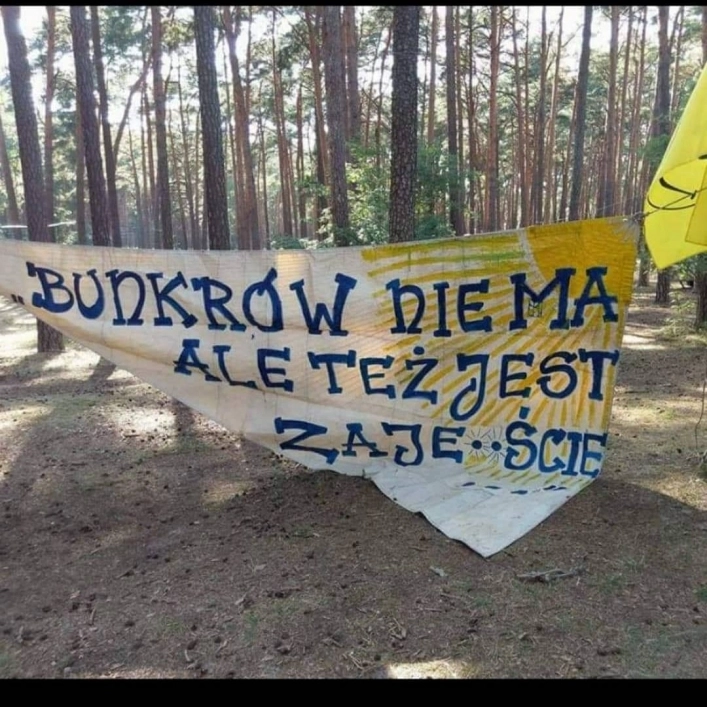 „BUNKRÓW NIE MA
ALE TEŻ JEST
ZAJE••ŚCIE